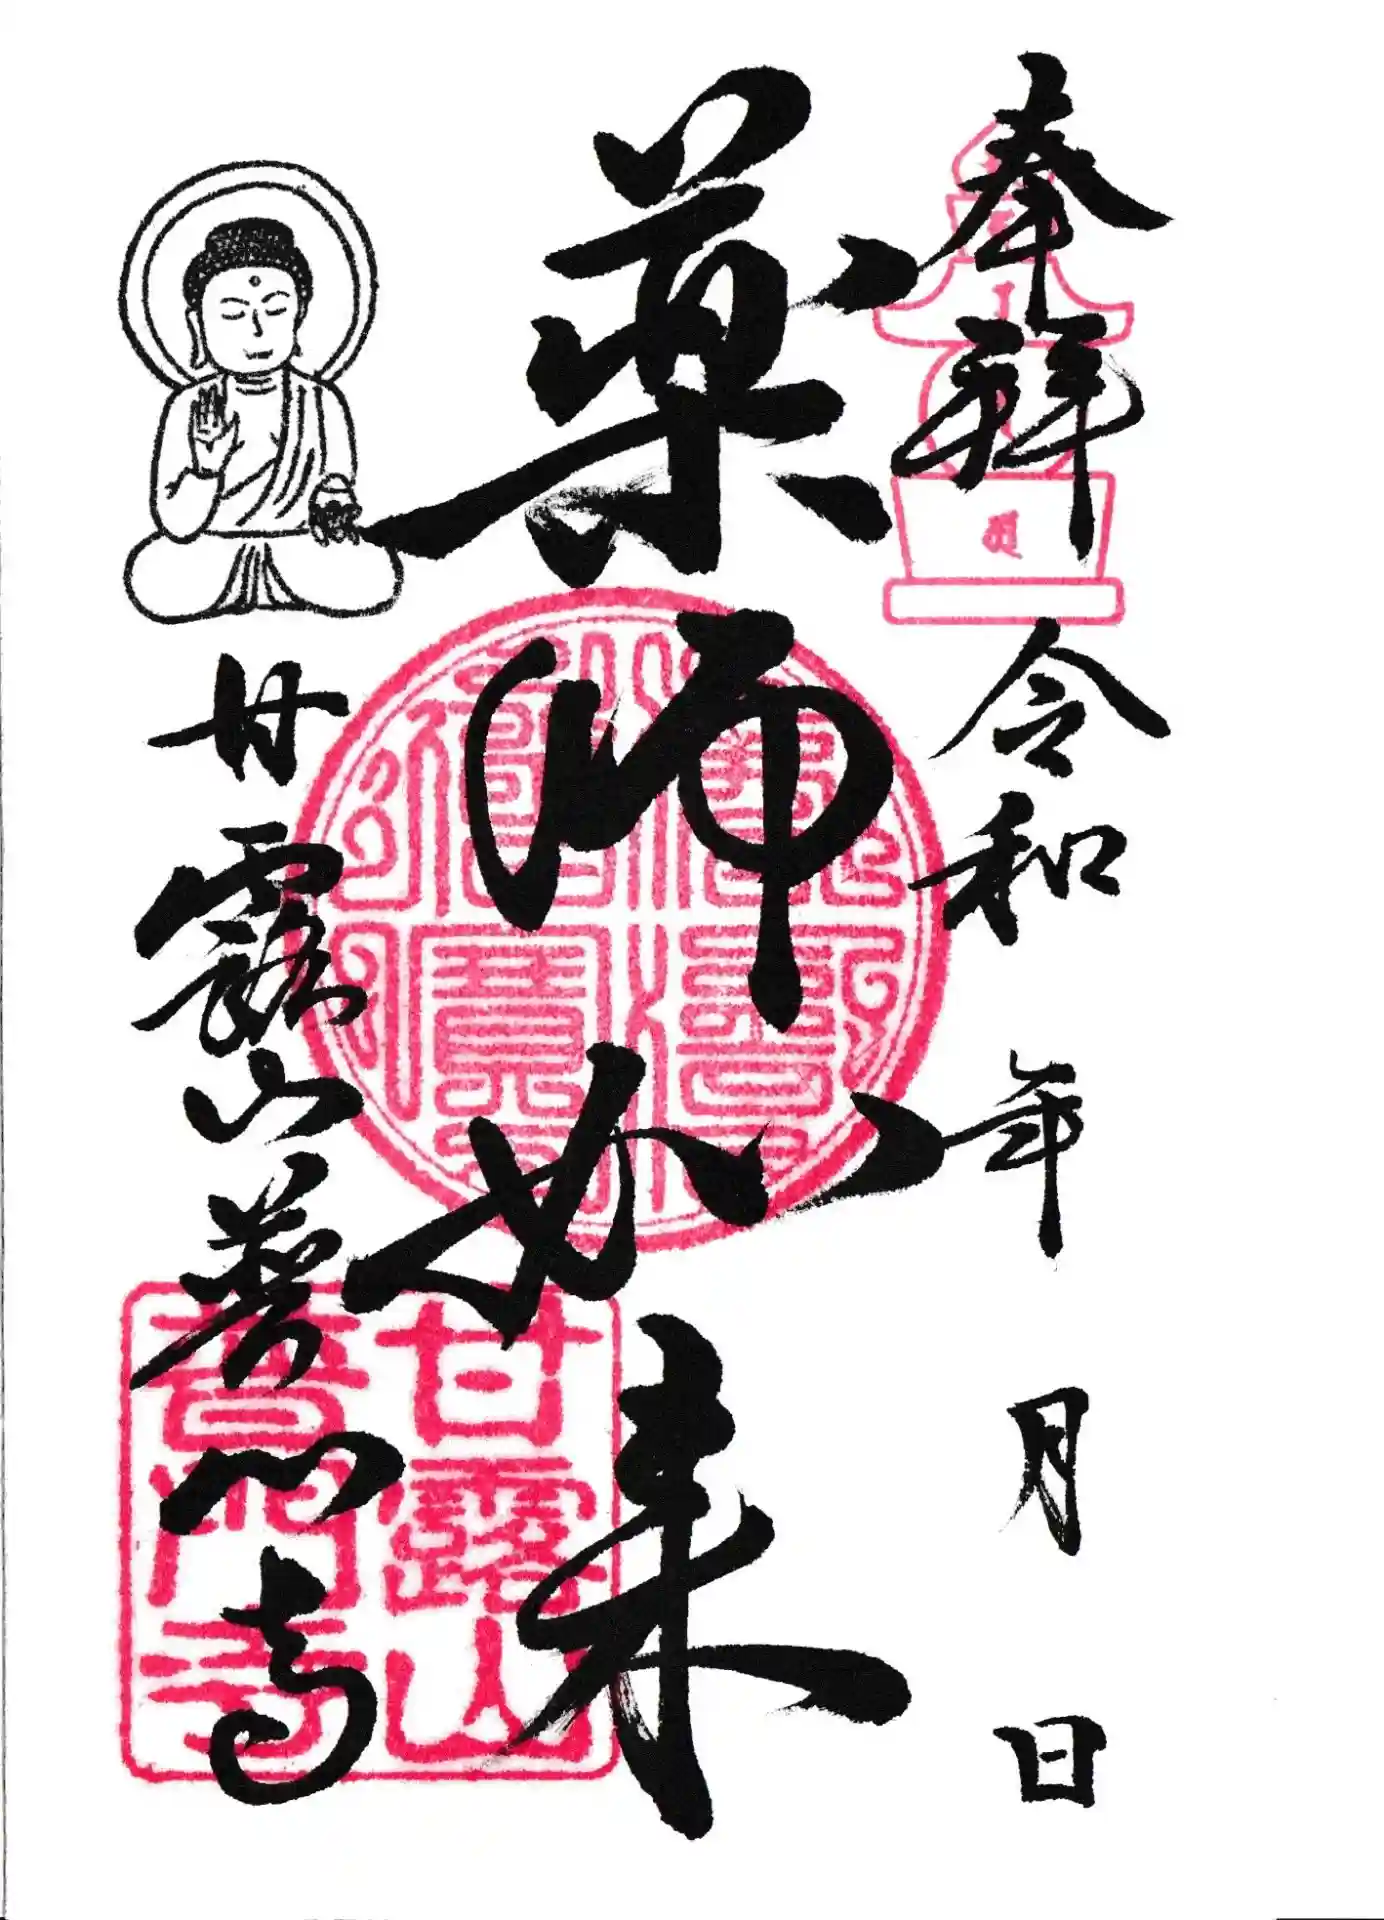 奉拝 令和 年 月 日
薬師如来
甘露山普門寺
甘露山
普門寺